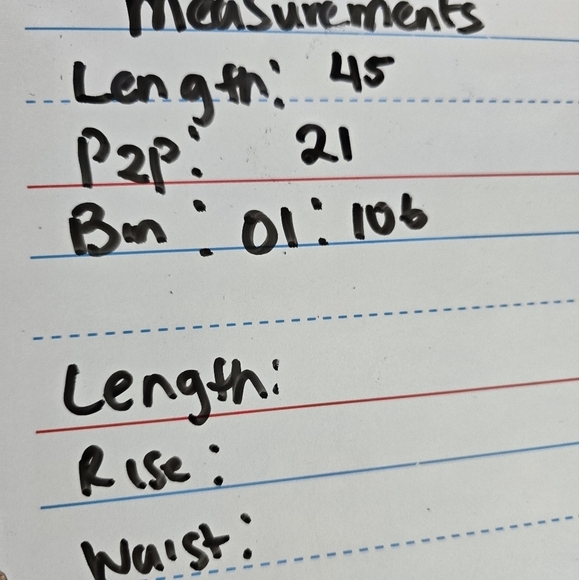 Measurements
Length: 45
P2p: 21
Bin: 01:106
Length:
Rise:
Waist: